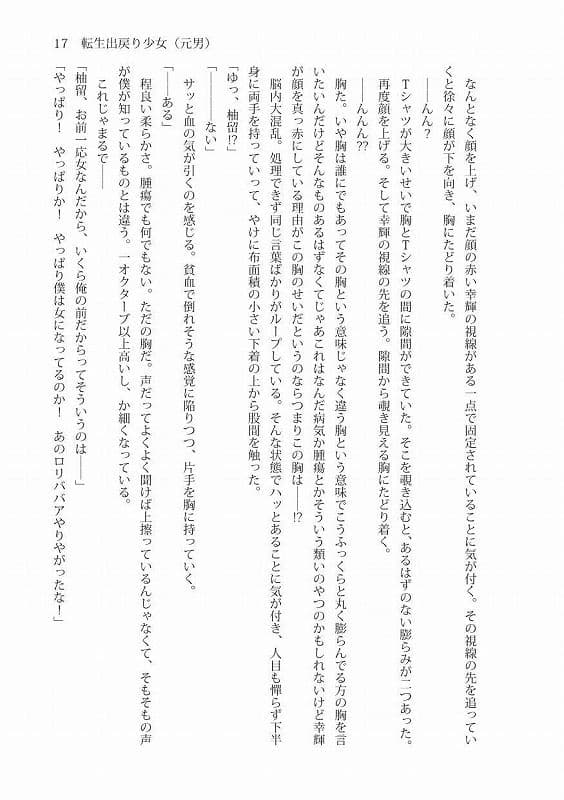 17　転生出戻り少女（元男）
　なんとなく顔を上げ、いまだ顔の赤い幸輝の視線がある一点で固定されていることに気が付く。その視線の先を追ってい
くと徐々に顔が下を向き、胸にたどり着いた。
　――んん？
　Ｔシャツが大きいせいで胸とＴシャツの間に隙間ができていた。そこを覗き込むと、あるはずのない膨らみが二つあった。
　再度顔を上げる。そして幸輝の視線の先を追う。隙間から覗き見える胸にたどり着く。
　――んんん⁇
　胸た。いや胸は誰にでもあってその胸という意味じゃなく違う胸という意味でこうふっくらと丸く膨らんでる方の胸を言
いたいんだけどそんなものあるはずなくてじゃあこれはなんだ病気か腫瘍とかそういう類いのやつのかもしれないけど幸輝
が顔を真っ赤にしている理由がこの胸のせいだというのならつまりこの胸は――⁉
　脳内大混乱。処理できず同じ言葉ばかりがループしている。そんな状態でハッとあることに気が付き、人目も憚らず下半
身に両手を持っていって、やけに布面積の小さい下着の上から股間を触った。
「ゆっ、柚留⁉」
「――――ない」
　サッと血の気が引くのを感じる。貧血で倒れそうな感覚に陥りつつ、片手を胸に持っていく。
「――ある」
　程良い柔らかさ。腫瘍でも何でもない。ただの胸だ。声だってよくよく聞けば上擦っているんじゃなくて、そもそもの声
が僕が知っているものとは違う。一オクターブ以上高いし、か細くなっている。
　これじゃまるで――
「柚留、お前一応女なんだから、いくら俺の前だからってそういうのは――」
「やっぱり！　やっぱりか！　やっぱり僕は女になってるのか！　あのロリババアやりやがったな！」